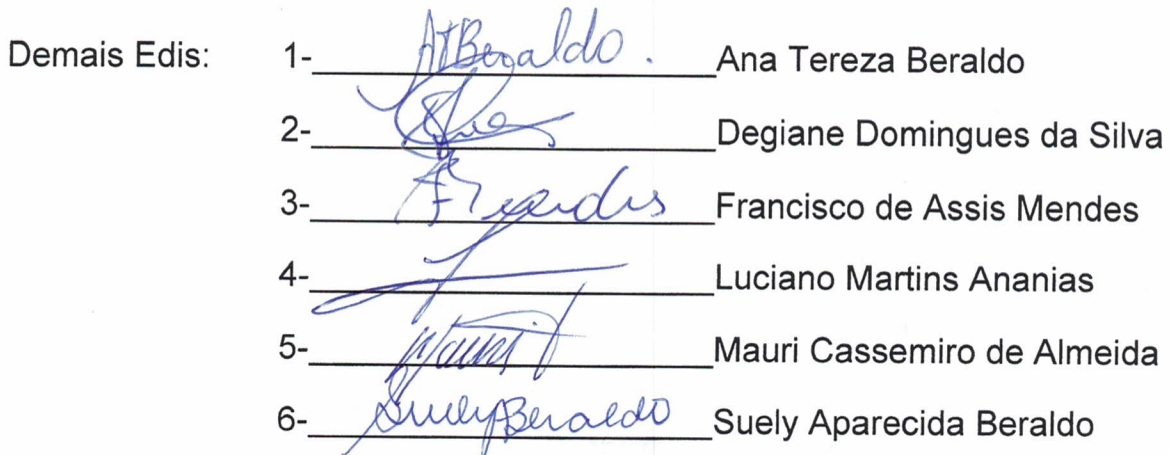 Demais Edis: 1- ATBeraldo. Ana Tereza Beraldo
2- Degiane Domingues da Silva
3- Francisco de Assis Mendes
4- Luciano Martins Ananias
5- Mauri Mauri Cassemiro de Almeida
6- SuelyBeraldo Suely Aparecida Beraldo